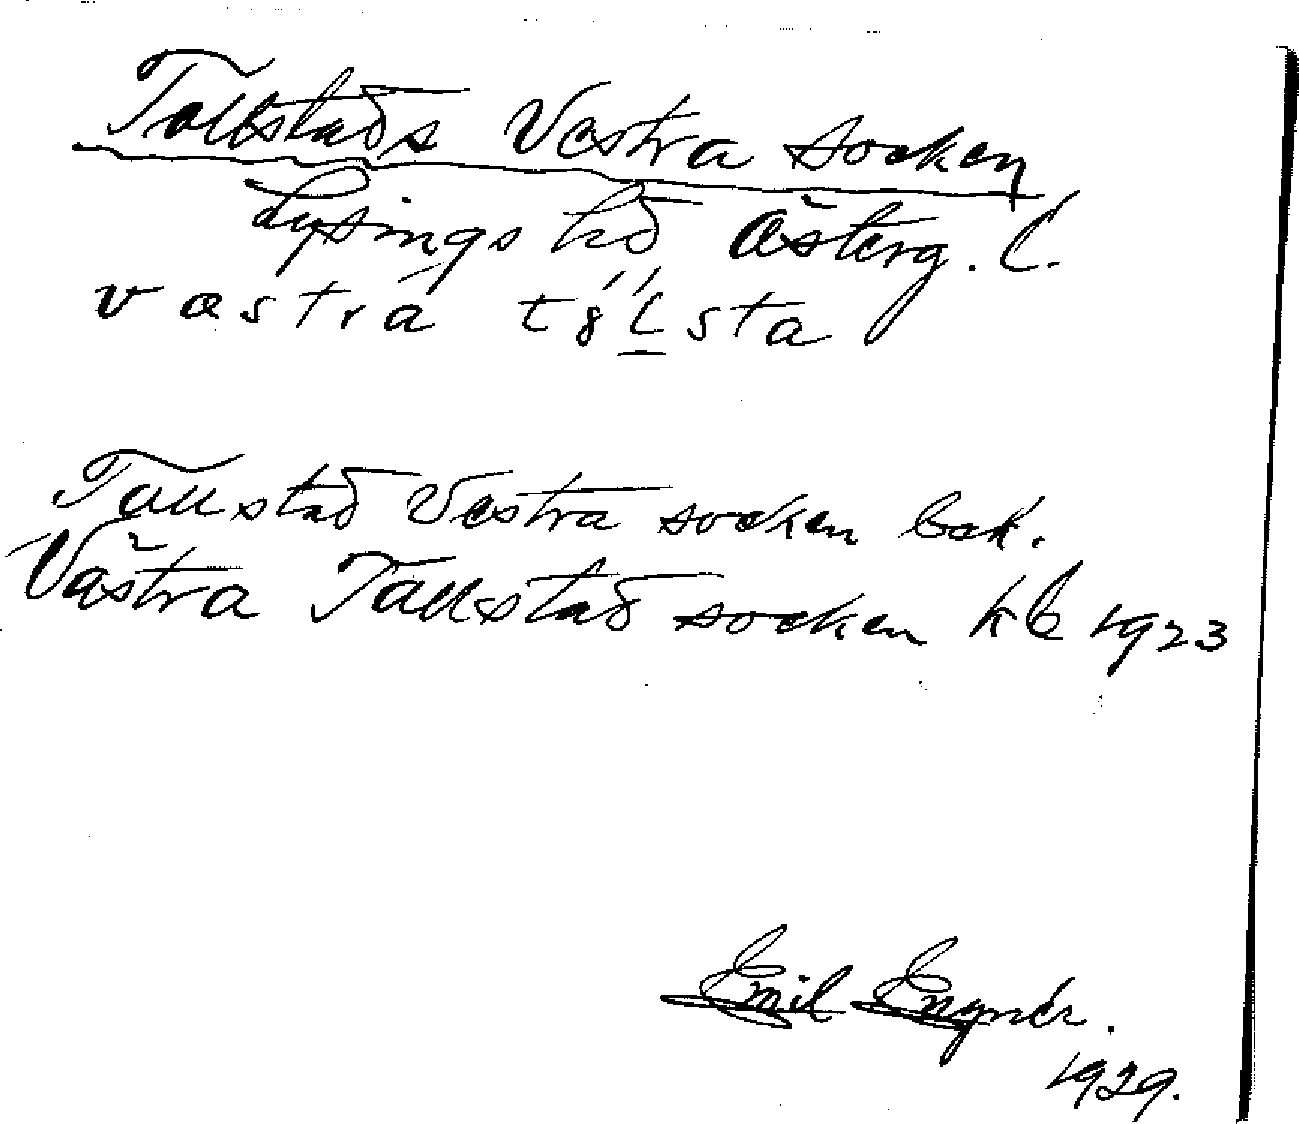 Tollstads Västra socken
Lysings hd Österg. l.
västra tȣ́ĺsta
Tållstad Västra socken bok.
Västra Tållstad socken kb 1923
Emil Engnér.
1929.